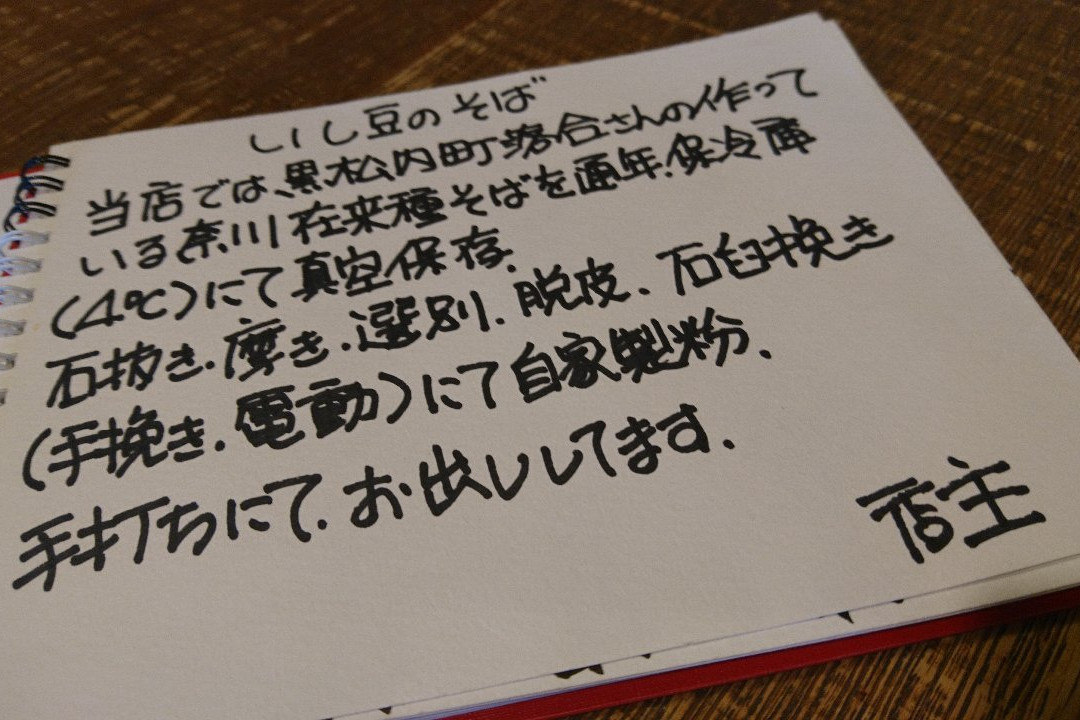 しし豆のそば
当店では、黒松内町落合さんの作って
いる奈川在来種そばを通年.保冷庫
(4℃)にて真空保存.
石抜き.磨き.選別.脱皮、石臼挽き
(手挽き.電動)にて自家製粉.
手打ちにて.お出ししてます.
店主